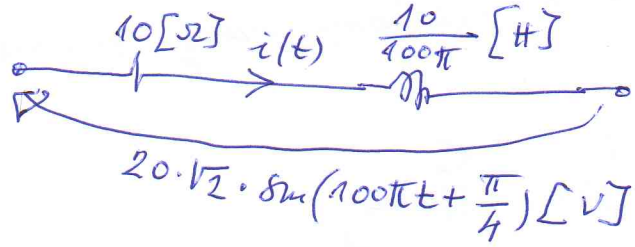 10[Ω] i(t) 10/100π [H]
20·√2·sin(100πt + π/4)[V]